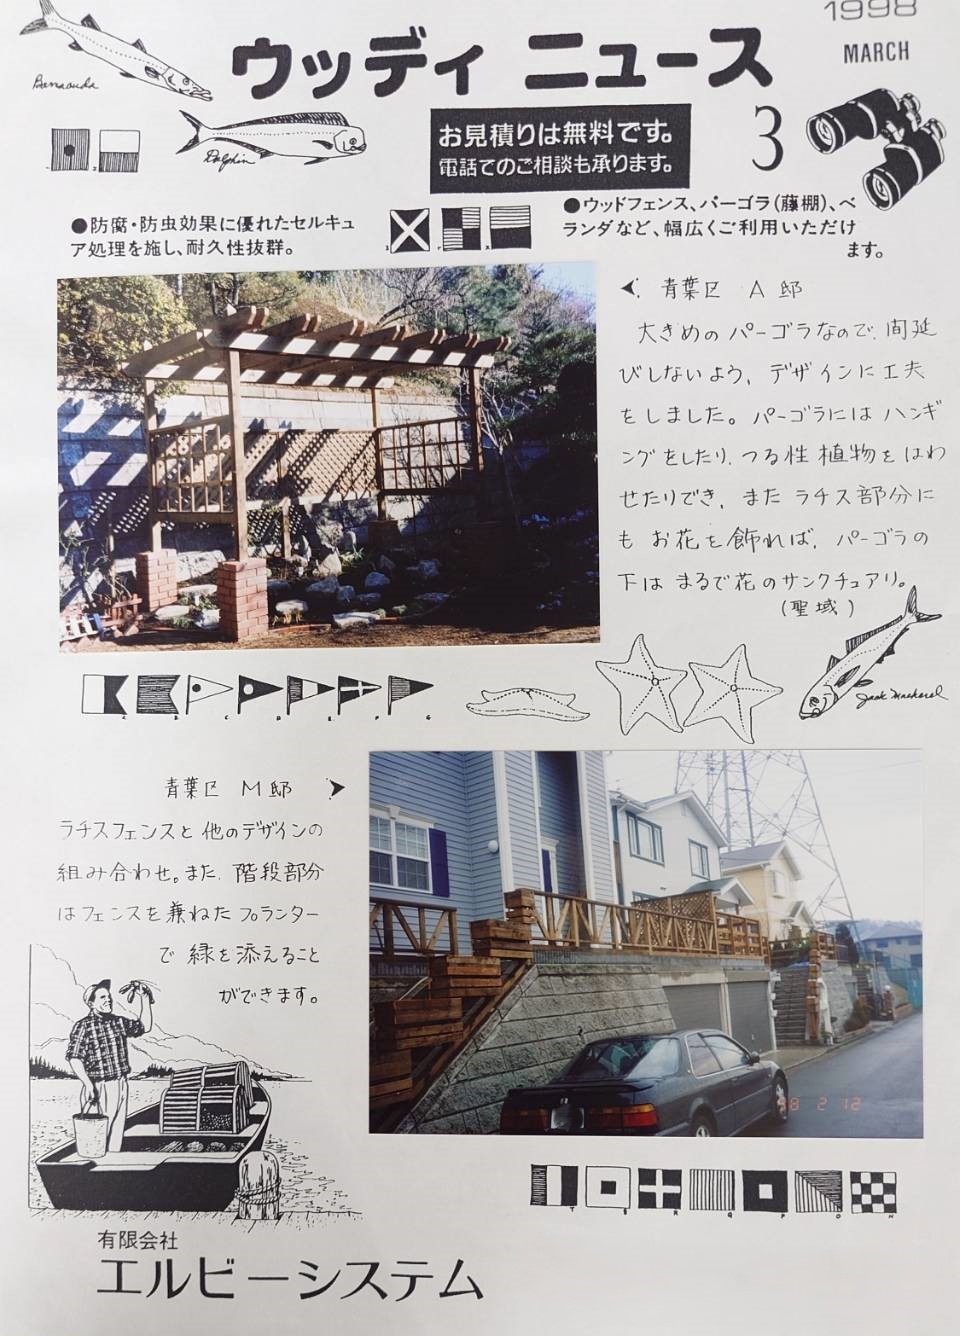 1998
MARCH
3
ウッディ ニュース
Barracuda
Dolphin
お見積りは無料です。
電話でのご相談も承ります。
●防腐・防虫効果に優れたセルキュ
ア処理を施し、耐久性抜群。
●ウッドフェンス、パーゴラ(藤棚)、ベ
ランダなど、幅広くご利用いただけ
ます。
青葉区 A 邸
大きめのパーゴラなので、間延
びしないよう、デザインに工夫
をしました。パーゴラにはハンギ
ングをしたり、つる性植物をはわ
せたりでき、またラチス部分に
もお花を飾れば、パーゴラの
下はまるで花のサンクチュアリ。
(聖域)
C B C D E F G
Jack Mackerel
青葉区 M 邸
ラチスフェンスと他のデザインの
組み合わせ。また、階段部分
はフェンスを兼ねたプランター
で緑を添えること
ができます。
98 2 12
T S R Q P O N
有限会社
エルビーシステム